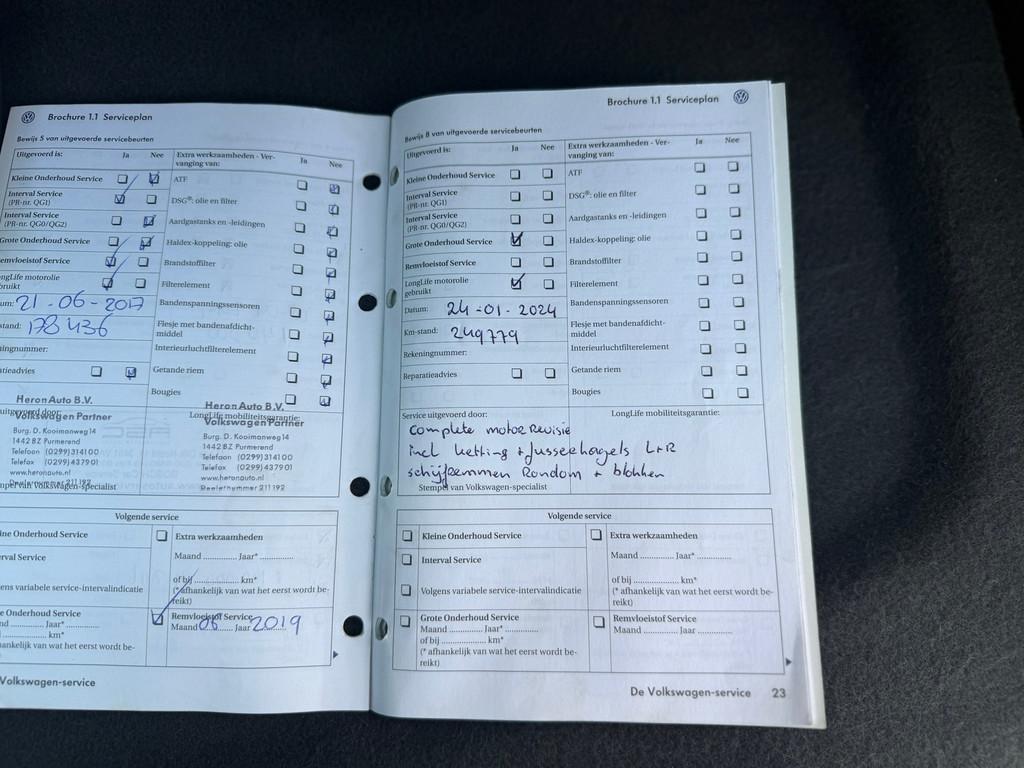 Brochure 1.1 Serviceplan
Bewijs 5 van uitgevoerde servicebeurten
Uitgevoerd is: Ja Nee
Kleine Onderhoud Service
Interval Service
(PR-nr. QG1)
Interval Service
(PR-nr. QG0/QG2)
Grote Onderhoud Service
Remvloeistof Service
LongLife motorolie
gebruikt
Datum: 21-06-2017
Km-stand: 178436
Rekeningnummer:
Reparatieadvies
Extra werkzaamheden - Ver-
vanging van: Ja Nee
ATF
DSG®: olie en filter
Aardgastanks en -leidingen
Haldex-koppeling: olie
Brandstoffilter
Filterelement
Bandenspanningssensoren
Flesje met bandenafdicht-
middel
Interieurluchtfilterelement
Getande riem
Bougies
Heron Auto B.V.
Volkswagen Partner
Burg. D. Kooimanweg 14
1442 BZ Purmerend
Telefoon (0299) 314100
Telefax (0299) 437901
www.heronauto.nl
Dealernummer 211192
Stempel van Volkswagen-specialist
LongLife mobiliteitsgarantie:
Heron Auto B.V.
Volkswagen Partner
Burg. D. Kooimanweg 14
1442 BZ Purmerend
Telefoon (0299) 314100
Telefax (0299) 437901
www.heronauto.nl
Dealernummer 211192
Volgende service
Kleine Onderhoud Service
Interval Service
Volgens variabele service-intervalindicatie
Grote Onderhoud Service
Maand ............ Jaar* ............
............ km*
(* afhankelijk van wat het eerst wordt be-
Extra werkzaamheden
Maand ............ Jaar* ............
of bij ............ km*
(* afhankelijk van wat het eerst wordt be-
reikt)
Remvloeistof Service
Maand 06 Jaar 2019
Volkswagen-service
Brochure 1.1 Serviceplan
Bewijs 8 van uitgevoerde servicebeurten
Uitgevoerd is: Ja Nee
Kleine Onderhoud Service
Interval Service
(PR-nr. QG1)
Interval Service
(PR-nr. QG0/QG2)
Grote Onderhoud Service
Remvloeistof Service
LongLife motorolie
gebruikt
Datum: 24-01-2024
Km-stand: 249779
Rekeningnummer:
Reparatieadvies
Extra werkzaamheden - Ver-
vanging van: Ja Nee
ATF
DSG®: olie en filter
Aardgastanks en -leidingen
Haldex-koppeling: olie
Brandstoffilter
Filterelement
Bandenspanningssensoren
Flesje met bandenafdicht-
middel
Interieurluchtfilterelement
Getande riem
Bougies
Service uitgevoerd door: LongLife mobiliteitsgarantie:
complete motor Revisie
incl ketting + fuseekogels L+R
schijfremmen Rondom + blokken
Stempel van Volkswagen-specialist
Volgende service
Kleine Onderhoud Service
Interval Service
Volgens variabele service-intervalindicatie
Grote Onderhoud Service
Maand ............ Jaar* ............
of bij ............ km*
(* afhankelijk van wat het eerst wordt be-
reikt)
Extra werkzaamheden
Maand ............ Jaar* ............
of bij ............ km*
(* afhankelijk van wat het eerst wordt be-
reikt)
Remvloeistof Service
Maand ............ Jaar ............
De Volkswagen-service 23